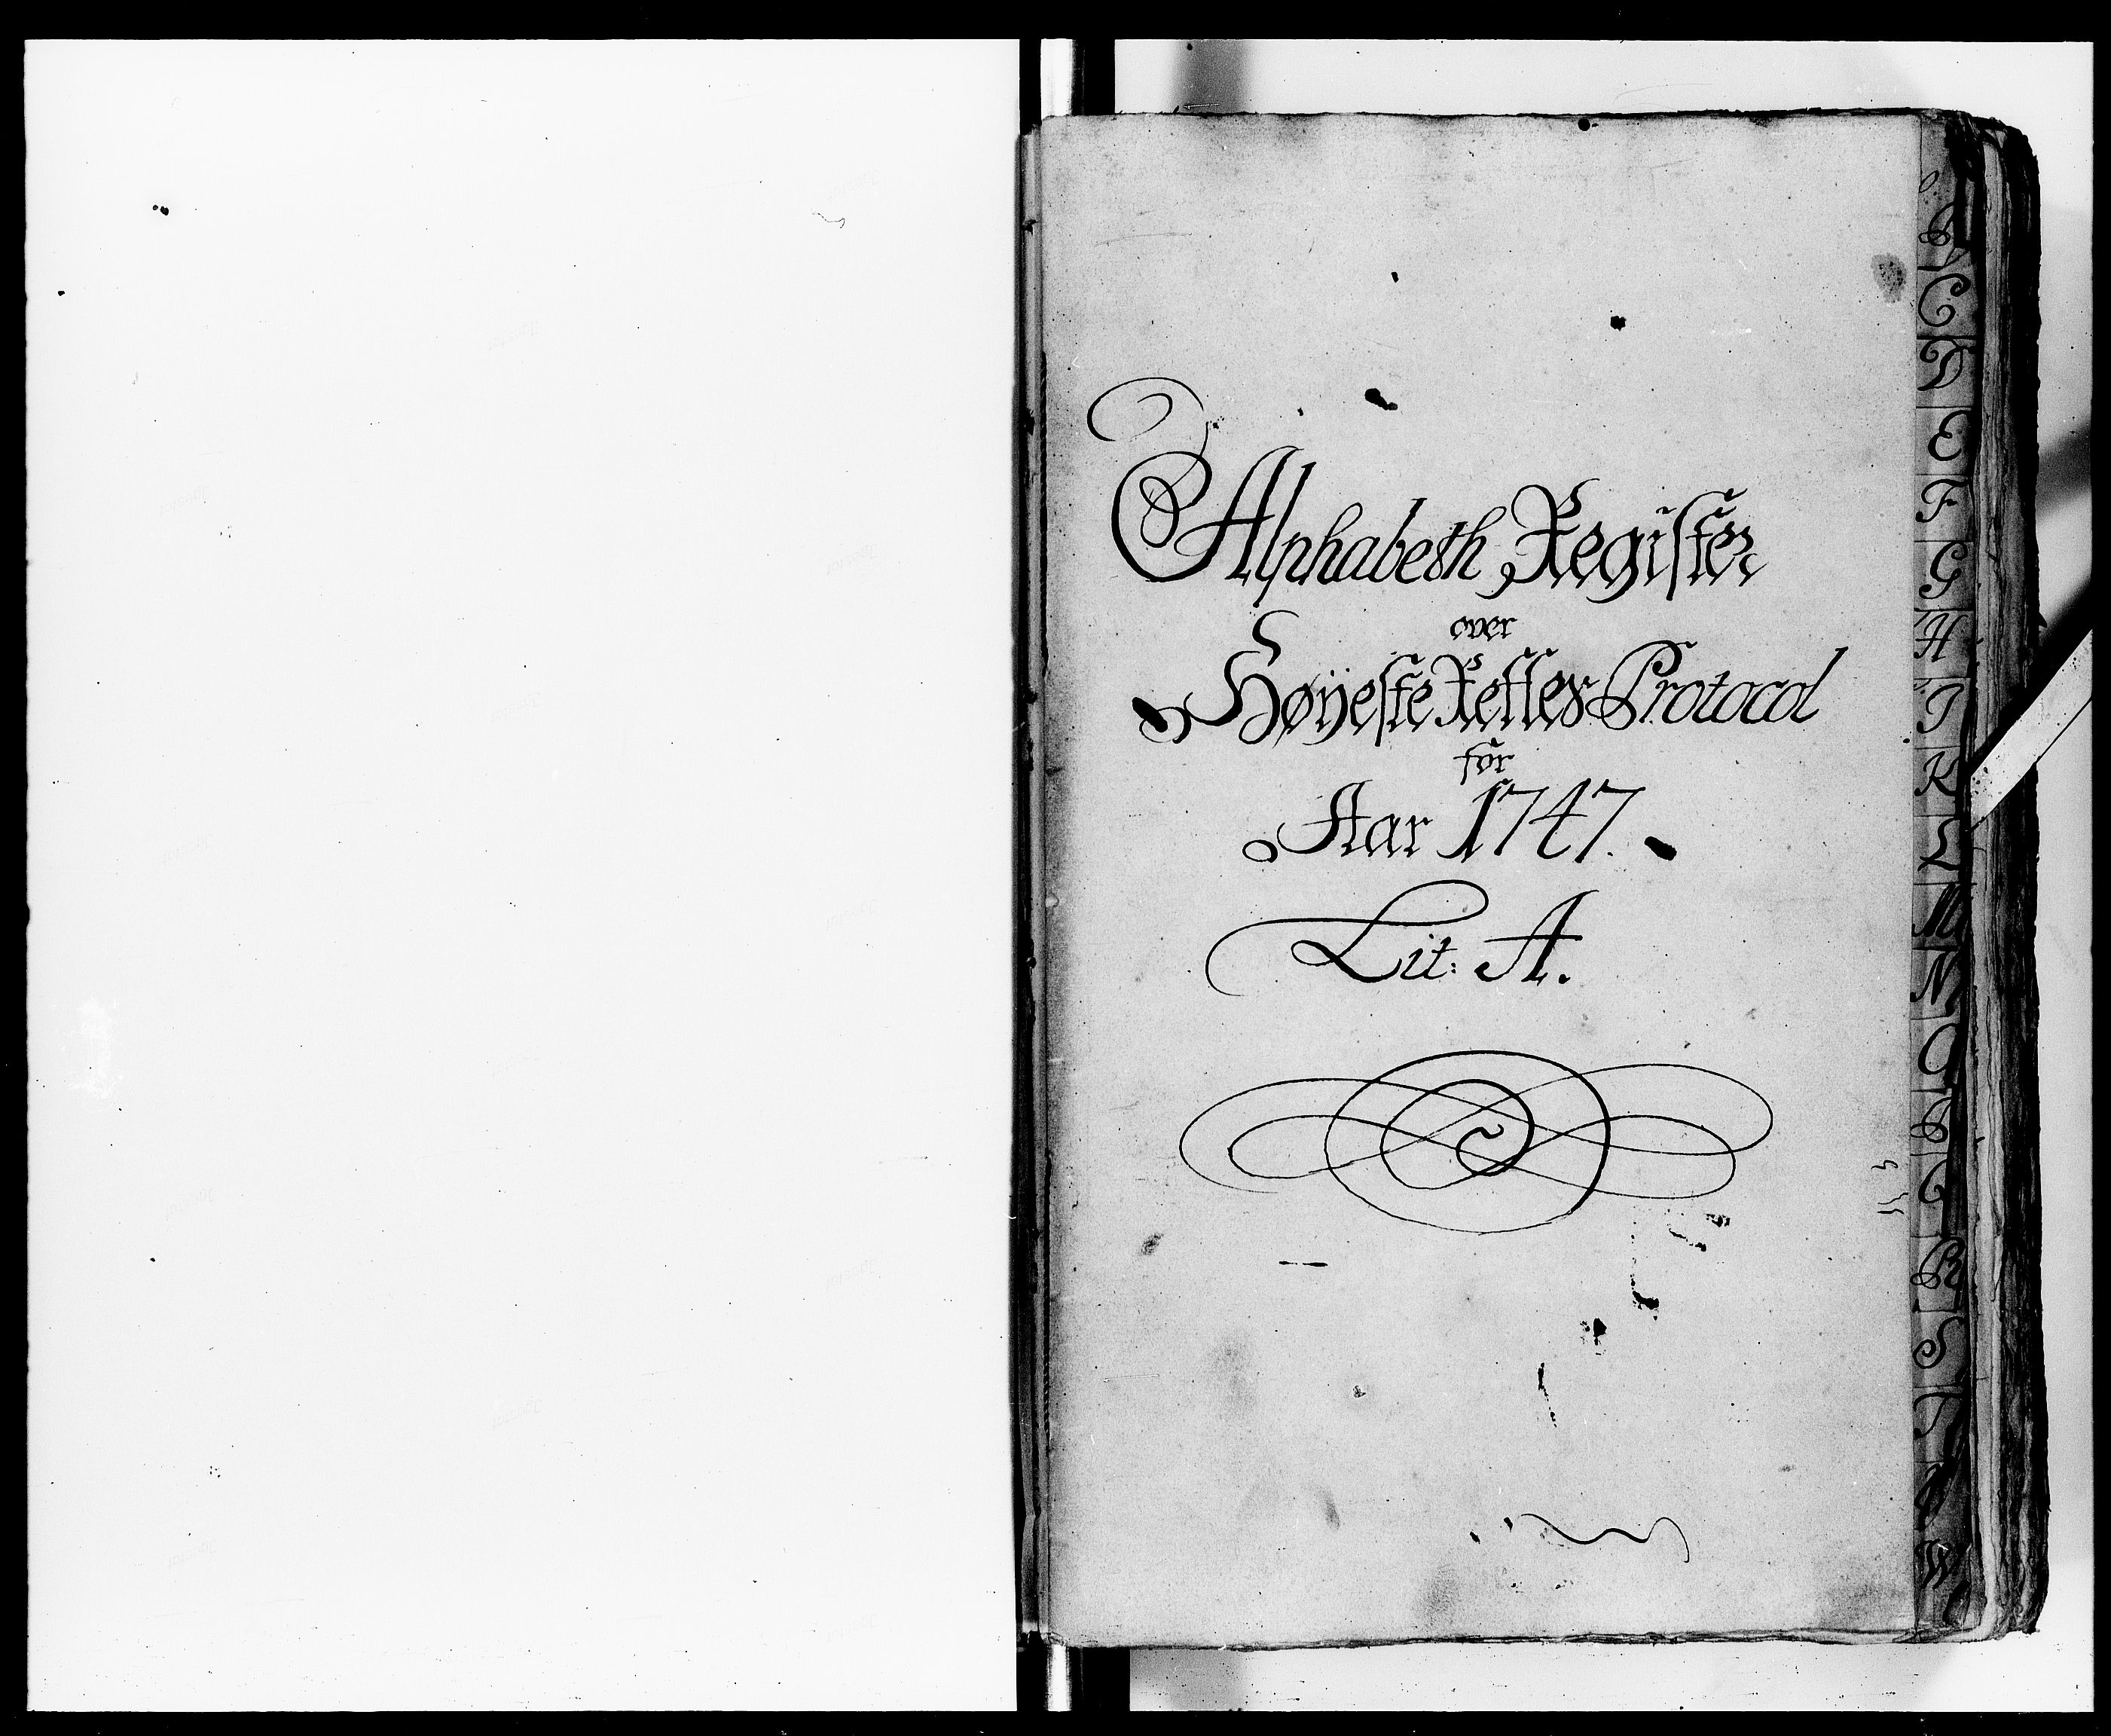 Alphabeth Register
over
Høyeste Rettes Protocol
for
Aar 1747.
Lit: A.
B
C
D
E
F
G
H
I
K
L
M
N
O
P
Q
R
S
T
V
W